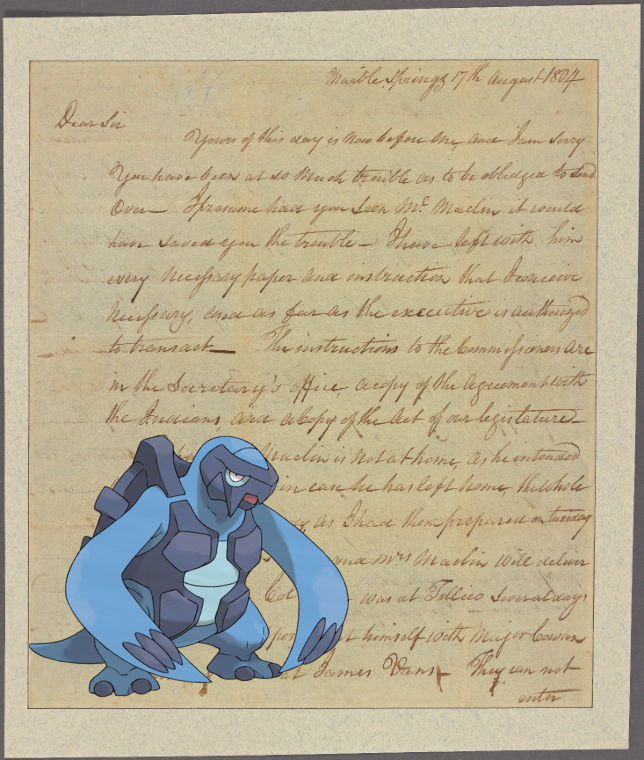 Marble Springs 17th August 1804
Dear Sir
Yours of this day is now before me, and I am sorry
You have been at so much trouble as to be obliedged to send
Over— I presume had you seen Mr. Maclin it would
have saved you the trouble— I have left with him
every necessary paper and instruction that I conceive
necessary, and as far as the executive is authorized
to transact— The instructions to the Commissioners are
in the Secretary's office, a copy of the agreement with
the Indians, and a Copy of the Act of our legislature—
Maclin is not at home, as he intended
in case he has left home, the whole
as I had them prepared on tuesday
and Mrs Maclin will deliver
Col was at Tellico several days
himself with Major Cowan
at James Vans— They can not
enter